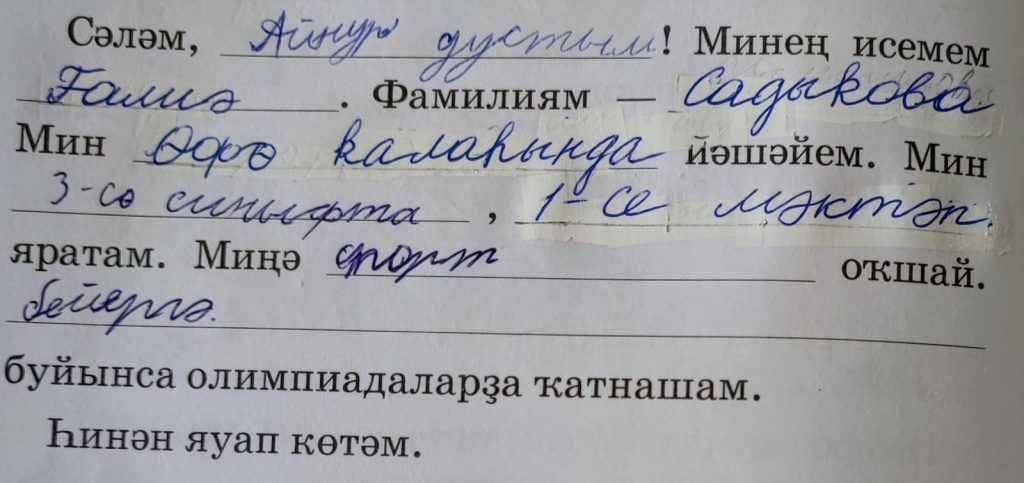 Сәләм, Айнур дуҫтым! Минең исемем
Ғалиә. Фамилиям — Садыкова
Мин Өфө ҡалаһында йәшәйем. Мин
3-сө синыфта, 1-се мәктәп.
яратам. Миңә спорт оҡшай.
бейергә.
буйынса олимпиадаларҙа ҡатнашам.
Һинән яуап көтәм.